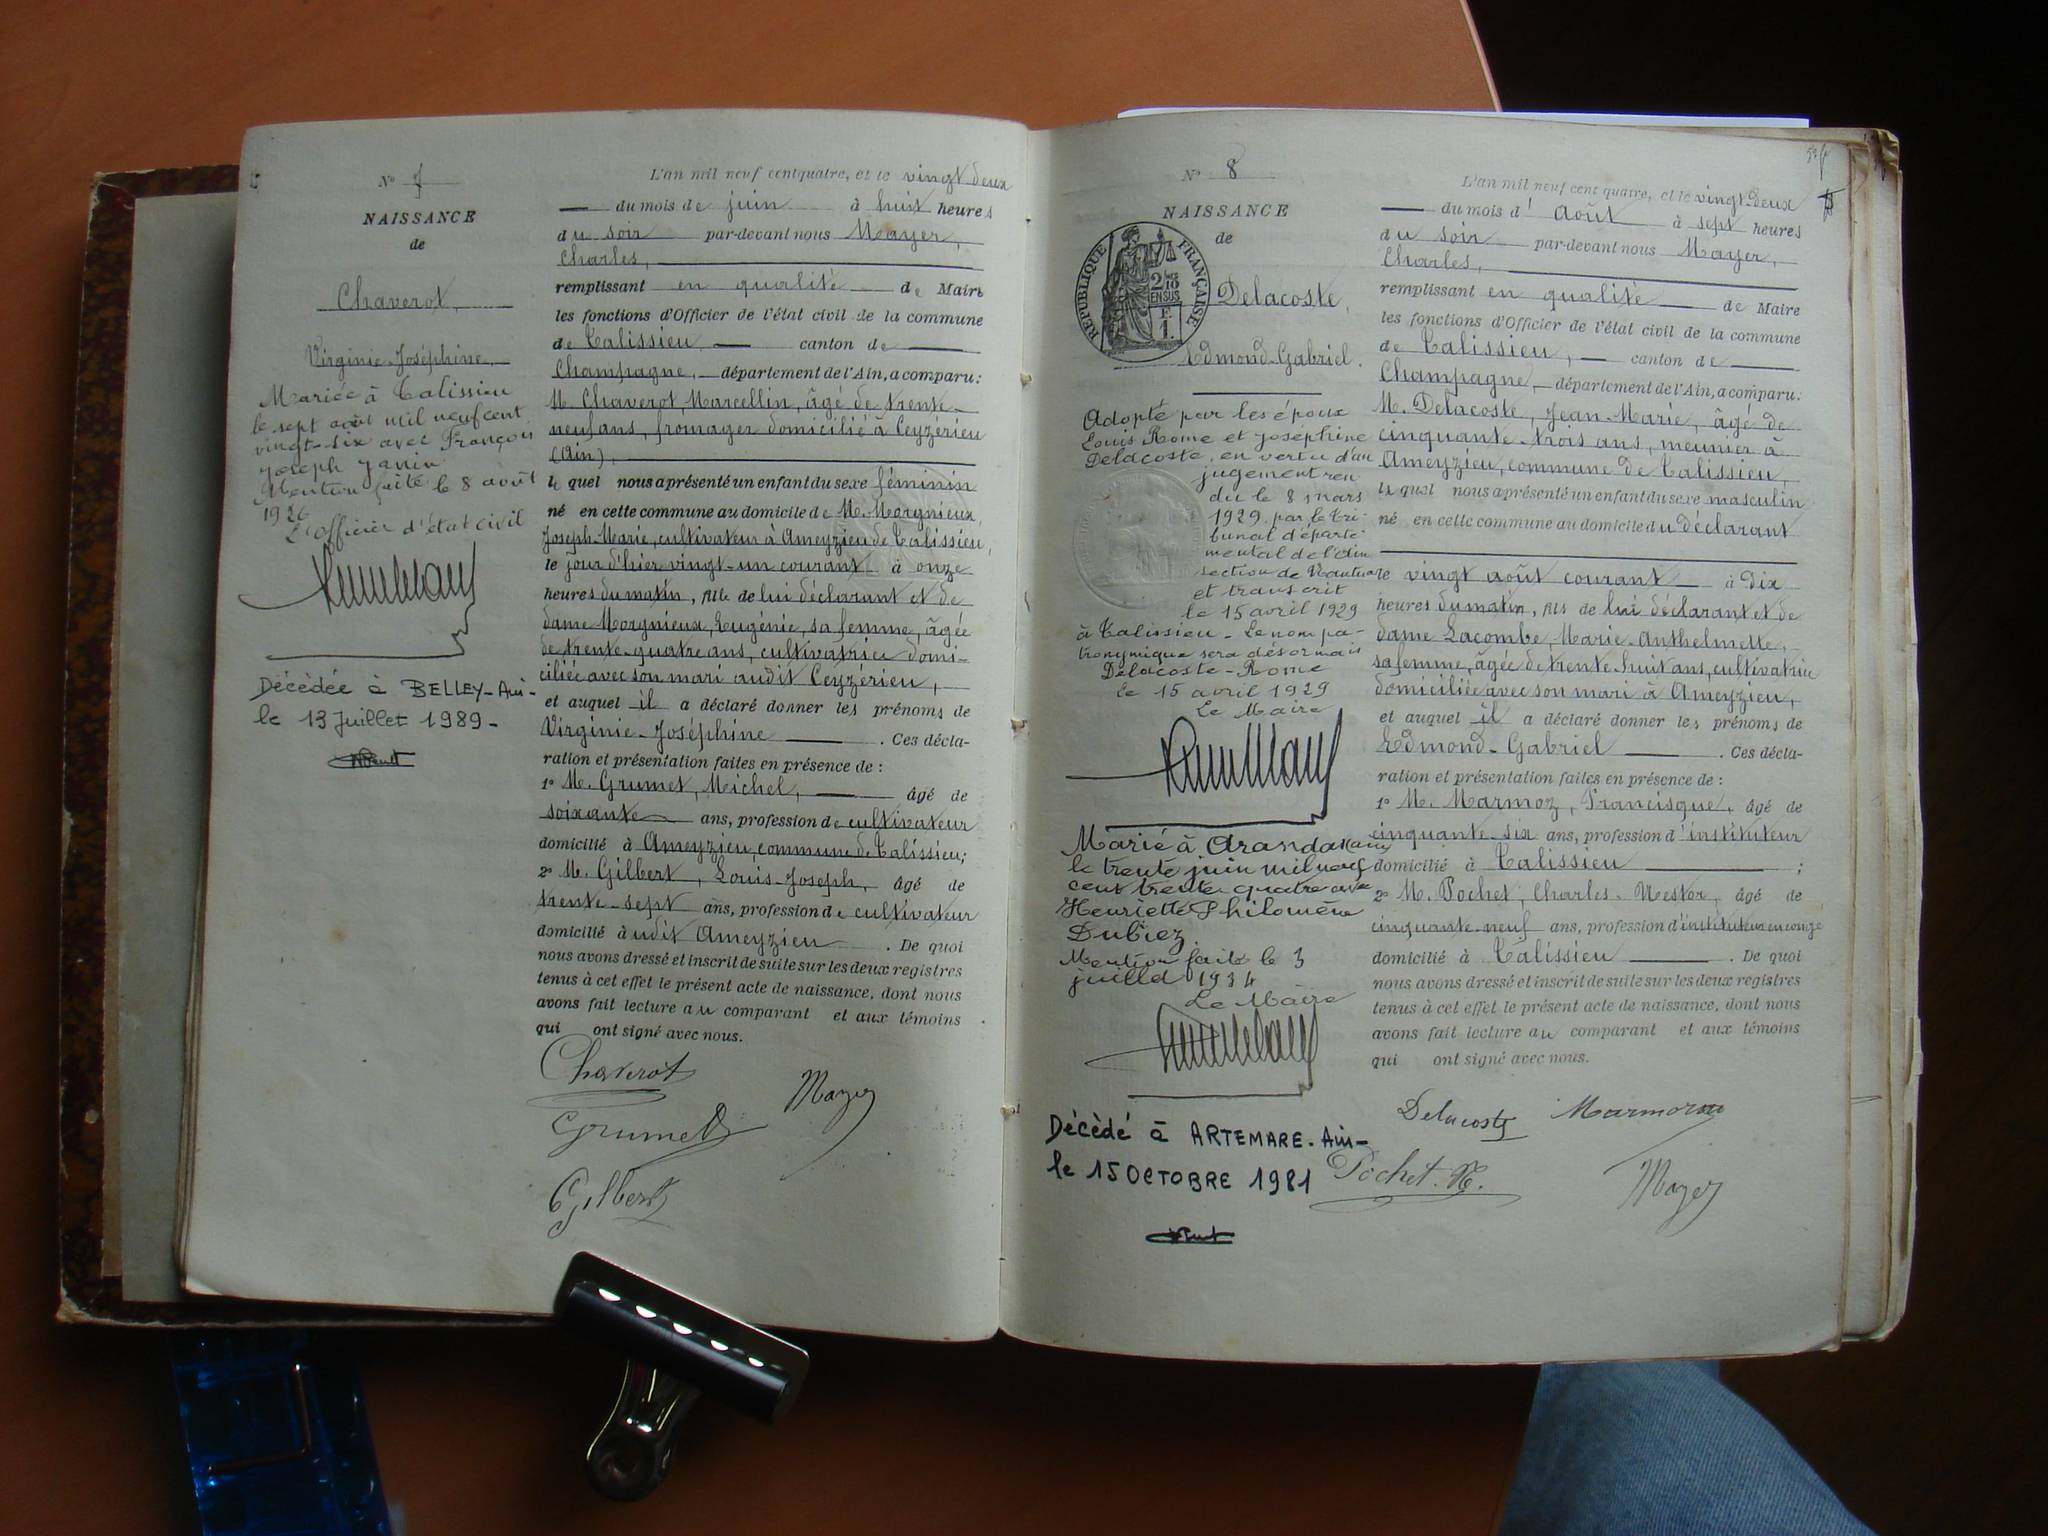 N° 7
NAISSANCE
de
Chaverot,
Virginie-Joséphine,
Mariée à Talissieu
le sept août mil neuf cent
vingt-six avec François
Joseph Janin
Mention faite le 8 août
1926
L'officier d'état civil
Décèdée à BELLEY-Ain-
le 13 Juillet 1989-
L'an mil neuf cent quatre, et le vingt deux
du mois de juin à huit heures
du soir par-devant nous Mayer,
Charles,
remplissant en qualité de Maire
les fonctions d'Officier de l'état civil de la commune
de Talissieu, canton de
Champagne, département de l'Ain, a comparu:
M. Chaverot, Marcellin, âgé de trente-
neuf ans, fromager domicilié à Ceyzérieu
(Ain),
lequel nous a présenté un enfant du sexe féminin
né en cette commune au domicile de M. Morgnieux,
Joseph-Marie, cultivateur à Ameyzieu de Talissieu,
le jour d'hier vingt-un courant à onze
heures du matin, fille de lui déclarant et de
dame Morgnieux, Eugénie, sa femme, âgée
de trente-quatre ans, cultivatrice domi-
ciliée avec son mari audit Ceyzérieu,
et auquel il a déclaré donner les prénoms de
Virginie-Joséphine. Ces décla-
ration et présentation faites en présence de :
1° M. Grumet, Michel, âgé de
soixante ans, profession de cultivateur
domicilié à Ameyzieu, commune de Talissieu;
2° M. Gilbert, Louis-Joseph, âgé de
trente-sept ans, profession de cultivateur
domicilié audit Ameyzieu. De quoi
nous avons dressé et inscrit de suite sur les deux registres
tenus à cet effet le présent acte de naissance, dont nous
avons fait lecture au comparant et aux témoins
qui ont signé avec nous.
Chaverot
Mayer
Grumet
Gilbert
N° 8
NAISSANCE
de
RÉPUBLIQUE FRANÇAISE
2/10
EN SUS
F.
1.
Delacoste,
Edmond-Gabriel.
Adopté par les époux
Louis Rome et Joséphine
Delacoste, en vertu d'un
jugement ren
du le 8 mars
1929 par le tri-
bunal départe
mental de l'Ain
section de Nantua
et transcrit
le 15 avril 1929
à Talissieu - Le nom pa-
tronymique sera désormais
Delacoste-Rome
le 15 avril 1929
Le Maire
Marié à Arandas (Ain)
le trente juin mil neuf
cent trente quatre avec
Henriette Philomène
Dubiez
Mention faite le 3
juillet 1934
Le Maire
Décèdé à ARTEMARE-Ain-
le 15 OCTOBRE 1981
L'an mil neuf cent quatre, et le vingt-deux
du mois d'août à sept heures
du soir par-devant nous Mayer,
Charles,
remplissant en qualité de Maire
les fonctions d'Officier de l'état civil de la commune
de Talissieu, canton de
Champagne, département de l'Ain, a comparu:
M. Delacoste, Jean-Marie, âgé de
cinquante-trois ans, meunier à
Ameyzieu, commune de Talissieu,
lequel nous a présenté un enfant du sexe masculin
né en cette commune au domicile du déclarant
le vingt août courant à dix
heures du matin, fils de lui déclarant et de
dame Lacombe, Marie-Anthelmette,
sa femme, âgée de trente huit ans, cultivatrice
domiciliée avec son mari à Ameyzieu,
et auquel il a déclaré donner les prénoms de
Edmond-Gabriel. Ces décla-
ration et présentation faites en présence de :
1° M. Marmoz, Francisque, âgé de
cinquante-six ans, profession d'instituteur
domicilié à Talissieu ;
2° M. Pochet, Charles-Nestor, âgé de
cinquante-neuf ans, profession d'instituteur en congé
domicilié à Talissieu. De quoi
nous avons dressé et inscrit de suite sur les deux registres
tenus à cet effet le présent acte de naissance, dont nous
avons fait lecture au comparant et aux témoins
qui ont signé avec nous.
Delacoste Marmoz
Pochet. N. Mayer